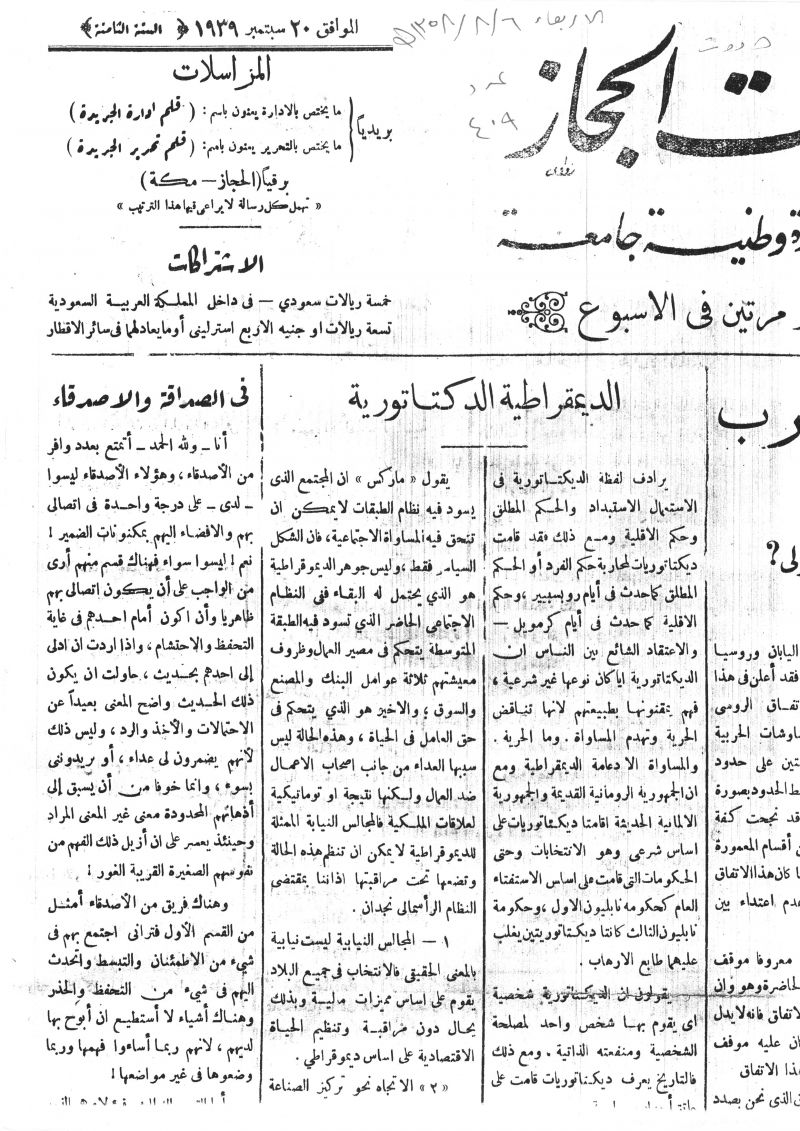 الاربعاء ٦ / ٨ / ١٣٥٨هـ
الموافق ٢٠ سبتمبر ١٩٣٩ ﴿ السنة الثامنة ﴾
ت الحجاز
عدد
٤٠٩
المراسلات
بريدياً
ما يختص بالادارة يعنون باسم: ( قلم ادارة الجريدة )
ما يختص بالتحرير يعنون باسم: ( قلم تحرير الجريدة )
برقياً (الحجاز — مكة)
« تهمل كل رسالة لا يراعى فيها هذا الترتيب »
ة وطنية جامعة
مرتين فى الاسبوع
الاشتراكات
خمسة ريالات سعودي — فى داخل المملكة العربية السعودية
تسعة ريالات او جنيه الا ربع استرلينى أو ما يعادلهما فى سائر الاقطار
رب
لى ؟
اليابان وروسيا
فقد أعلن فى هذا
تفاق الروسى
اوشات الحربية
تين على حدود
ط الحدود بصورة
قد نجحت كفة
ن أقسام المعمورة
ا كان هذا الاتفاق
دم اعتداء بين
معروفا موقف
لحاضرة وهو وان
لاتفاق فانه لا يدل
ان عليه موقف
هذا الاتفاق
ق الذى نحن بصدد
الديمقراطية الدكتاتورية
يرادف لفظة الديكتاتورية فى
الاستعمال الاستبداد والحكم المطلق
وحكم الاقلية ومع ذلك فقد قامت
ديكتاتوريات لمحاربة حكم الفرد أو الحكم
المطلق كما حدث فى أيام روبسبيير ، وحكم
الاقلية كما حدث فى أيام كرمويل —
والاعتقاد الشائع بين الناس ان
الديكتاتورية ايا كان نوعها غير شرعية ،
فهم يمقتونها بطبيعتهم لانها تناقض
الحرية وتهدم المساواة . وما الحرية .
والمساواة الا دعامة الديمقراطية ومع
ان الجمهورية الرومانية القديمة والجمهورية
الالمانية الحديثة اقامتا ديكتاتوريات على
اساس شرعى وهو الانتخابات وحتى
الحكومات التى قامت على اساس الاستفتاء
العام كحكومه نابليون الاول ، وحكومة
نابليون الثالث كانتا ديكتاتوريتين يغلب
عليهما طابع الارهاب .
يقولون ان الديكتاتورية شخصية
اى يقوم بها شخص واحد لمصلحة
الشخصية ومنفعته الذاتية . ومع ذلك
فالتاريخ يعرف ديكتاتوريات قامت على
يقول « ماركس » ان المجتمع الذى
يسود فيه نظام الطبقات لايمكن ان
تتحقق فيه المساواة الاجتماعية ، فان الشكل
السياسى فقط ، وليس جوهر الديموقراطية
هو الذي يحتمل له البقاء ففى النظام
الاجتماعى الحاضر الذي تسود فيه الطبقة
المتوسطة يتحكم فى مصير العمال وظروف
معيشتهم ثلاثة عوامل البنك والمصنع
والسوق ؛ والاخير هو الذي يتحكم فى
حق العامل فى الحياة ، وهذه الحالة ليس
سببها العداء من جانب اصحاب الاعمال
ضد العمال ولكنها نتيجة او توماتيكية
لعلاقات الملكية فالمجالس النيابة الممثلة
للديموقراطية لا يمكن ان تنظم هذه الحالة
وتضعها تحت مراقبتها اذاننا بمقتضى
النظام الرأسمالى نجدان .
١ — المجالس النيابية ليست نيابية
بالمعنى الحقيقى فالانتخاب فى جميع البلاد
يقوم على اساس مميزات مدنية وبذلك
يحال دون مراقبة وتنظيم الحياة
الاقتصادية على اساس ديموقراطي .
« ٢ » الاتجاه نحو تركيز الصناعة
فى الصداقة والاصدقاء
أنا ـ ولله الحمد ـ أتمتع بعدد وافر
من الأصدقاء ، وهؤلاء الأصدقاء ليسوا
ـ لدى ـ على درجة واحدة فى اتصالى
بهم والافضاء اليهم بمكنونات الضمير !
نعم ! ليسوا سواء فهناك قسم منهم أرى
من الواجب على أن يكون اتصالى بهم
ظاهريا وأن اكون أمام احدهم فى غاية
التحفظ والاحتشام ، واذا اردت ان ادلى
إلى احدهم بحديث ، حاولت ان يكون
ذلك الحديث واضح المعنى بعيداً عن
الاحتمالات والأخذ والرد ، وليس ذلك
لأنهم يضمرون لى عداء ، أو يريدوننى
بسوء ، وانما خوفا من أن يسبق إلى
أذهانهم المحدودة معنى غير المعنى المراد
وحينئذ يعسر على ان أزيل ذلك الفهم من
نفوسهم الصغيرة القريبة الغور !
وهناك فريق من الأصدقاء أمثل
من القسم الأول فترانى اجتمع بهم فى
شيء من الاطمئنان والتبسط واتحدث
اليهم فى شيء من التحفظ والحذر
وهناك أشياء لا أستطيع ان أبوح بها
لديهم ، لانهم ربما أساءوا فهمها وربما
وضعوها فى غير مواضعها !